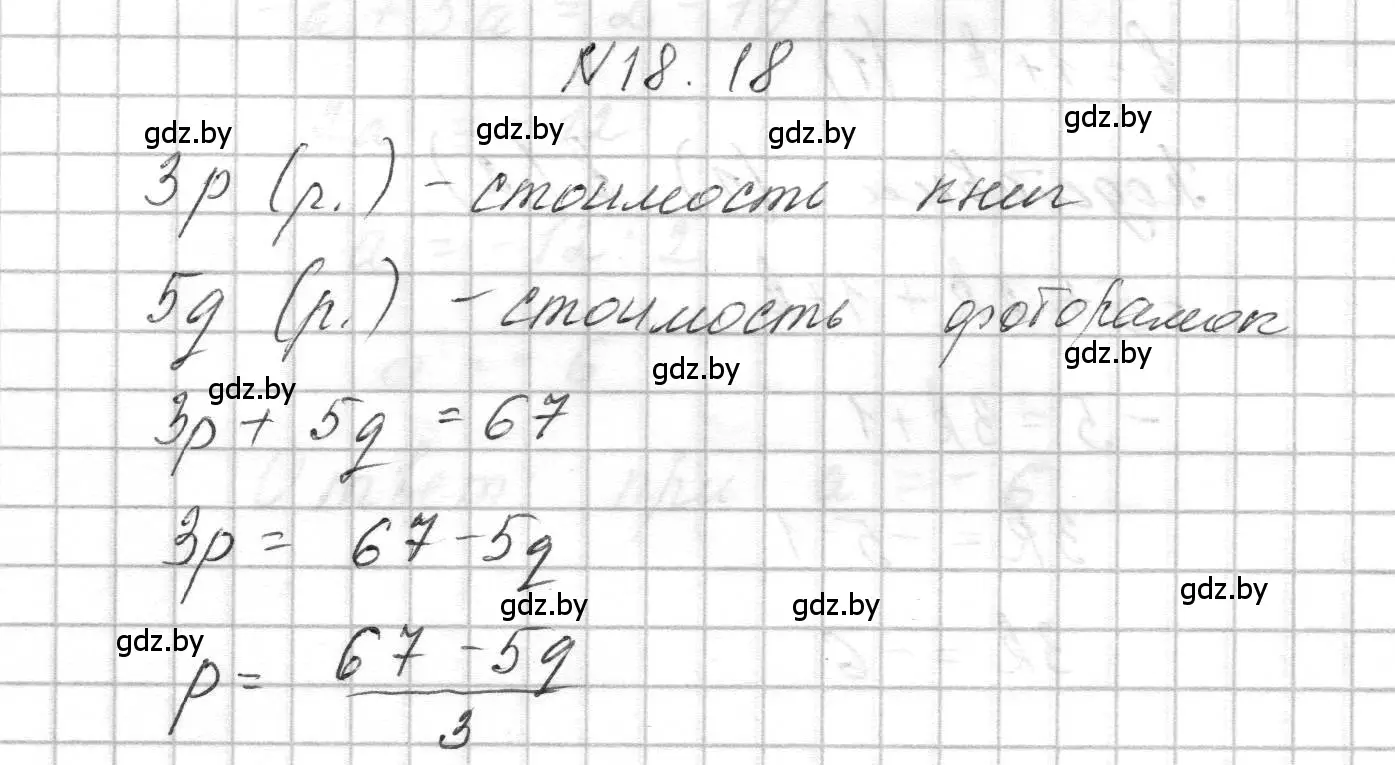 N18.18
gdz.by gdz.by gdz.by gdz.by
3p (р.) – стоимость книг
5q (р.) – стоимость фоторамок
gdz.by gdz.by gdz.by
3p + 5q = 67
3p = 67 - 5q
gdz.by gdz.by gdz.by gdz.by
p = \frac{67 - 5q}{3}